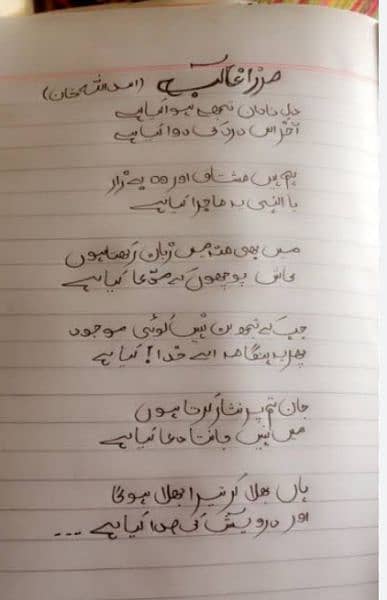 مرزا غالب (اسد اللہ خان)
دل ناداں تجھے ہوا کیا ہے
آخر اس درد کی دوا کیا ہے
ہم ہیں مشتاق اور وہ بے زار
یا الٰہی یہ ماجرا کیا ہے
میں بھی منہ میں زبان رکھتا ہوں
کاش پوچھوں کے مدعا کیا ہے
جب کے تجھ بن نہیں کوئی موجود
پھر یہ ہنگامہ اے خدا! کیا ہے
جان تم پر نثار کرتا ہوں
میں نہیں جانتا دعا کیا ہے
ہاں بھلا کر تیرا بھلا ہوگا
اور درویش کی صدا کیا ہے ...